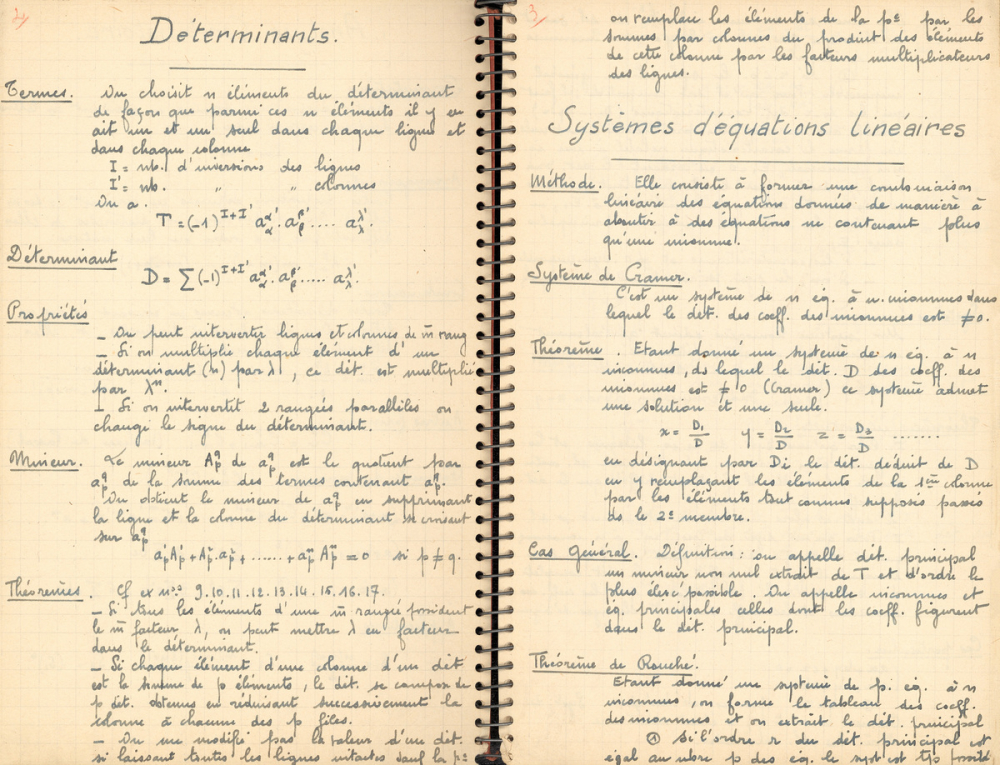 2
Déterminants.
Termes. On choisit n éléments du déterminant
de façon que parmi ces n éléments il y en
ait un et un seul dans chaque ligne et
dans chaque colonne
I = nb. d'inversions des lignes
I' = nb. " " colonnes
On a.
T = (-1)^{I+I'} a_α^{α'}. a_β^{β'} .... a_λ^{λ'}.
Déterminant
D = ∑ (-1)^{I+I'} a_α^{α'}. a_β^{β'} ..... a_λ^{λ'}.
Propriétés
– On peut intervertir lignes et colonnes de m̄ rang
– Si on multiplie chaque élément d'un
déterminant (n) par λ, ce dét. est multiplié
par λⁿ.
– Si on intervertit 2 rangées parallèles on
change le signe du déterminant.
Mineur. Le mineur A_p^q de a_p^q est le quotient par
a_p^q de la somme des termes contenant a_p^q.
On obtient le mineur de a_p^q en supprimant
la ligne et la colonne du déterminant se croisant
sur a_p^q
+ ...... + = 0 si p ≠ q.
Théorèmes. Cf ex nos 9.10.11.12.13.14.15.16.17.
– Si tous les éléments d'une m̄ rangée possèdent
le m̄ facteur λ, on peut mettre λ en facteur
dans le déterminant.
– Si chaque élément d'une colonne d'un dét
est la somme de p éléments, le dét. se compose de
p dét. obtenus en réduisant successivement la
colonne à chacune des p files.
– On ne modifie pas la valeur d'un dét.
si laissant toutes les lignes intactes sauf la pe
3
on remplace les éléments de la pe par les
sommes par colonnes du produit des éléments
de cette colonne par les facteurs multiplicateurs
des lignes.
Systèmes d'équations linéaires
Méthode. Elle consiste à former une combinaison
linéaire des équations données de manière à
aboutir à des équations ne contenant plus
qu'une inconnue.
Système de Cramer.
C'est un système de n éq. à n. inconnues dans
lequel le dét. des coeff. des inconnues est ≠ 0.
Théorème. Etant donné un système de n éq. à n
inconnues, ds lequel le dét. D des coeff. des
inconnues est ≠ 0 (Cramer) ce système admet
une solution et une seule.
x = D₁/D y = D₂/D z = D₃/D .......
en désignant par Di le dét. déduit de D
en y remplaçant les éléments de la ième colonne
par les éléments tout connus supposés passés
ds le 2e membre.
Cas Général. Définition : on appelle dét. principal
un mineur non nul extrait de T et d'ordre le
plus élevé possible. On appelle inconnues et
éq. principales celles dont les coeff. figurent
dans le dét. principal.
Théorème de Rouché.
Etant donné un système de p. éq. à n
inconnues, on forme le tableau des coeff.
des inconnues et on extrait le dét. principal
① Si l'ordre r du dét. principal est
égal au nbre p des éq. le syst est tjs possible